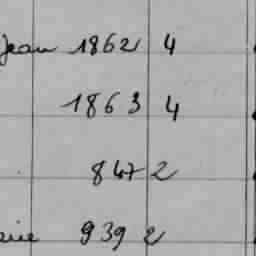 Jean 1862 4
1863 4
847 2
939 2